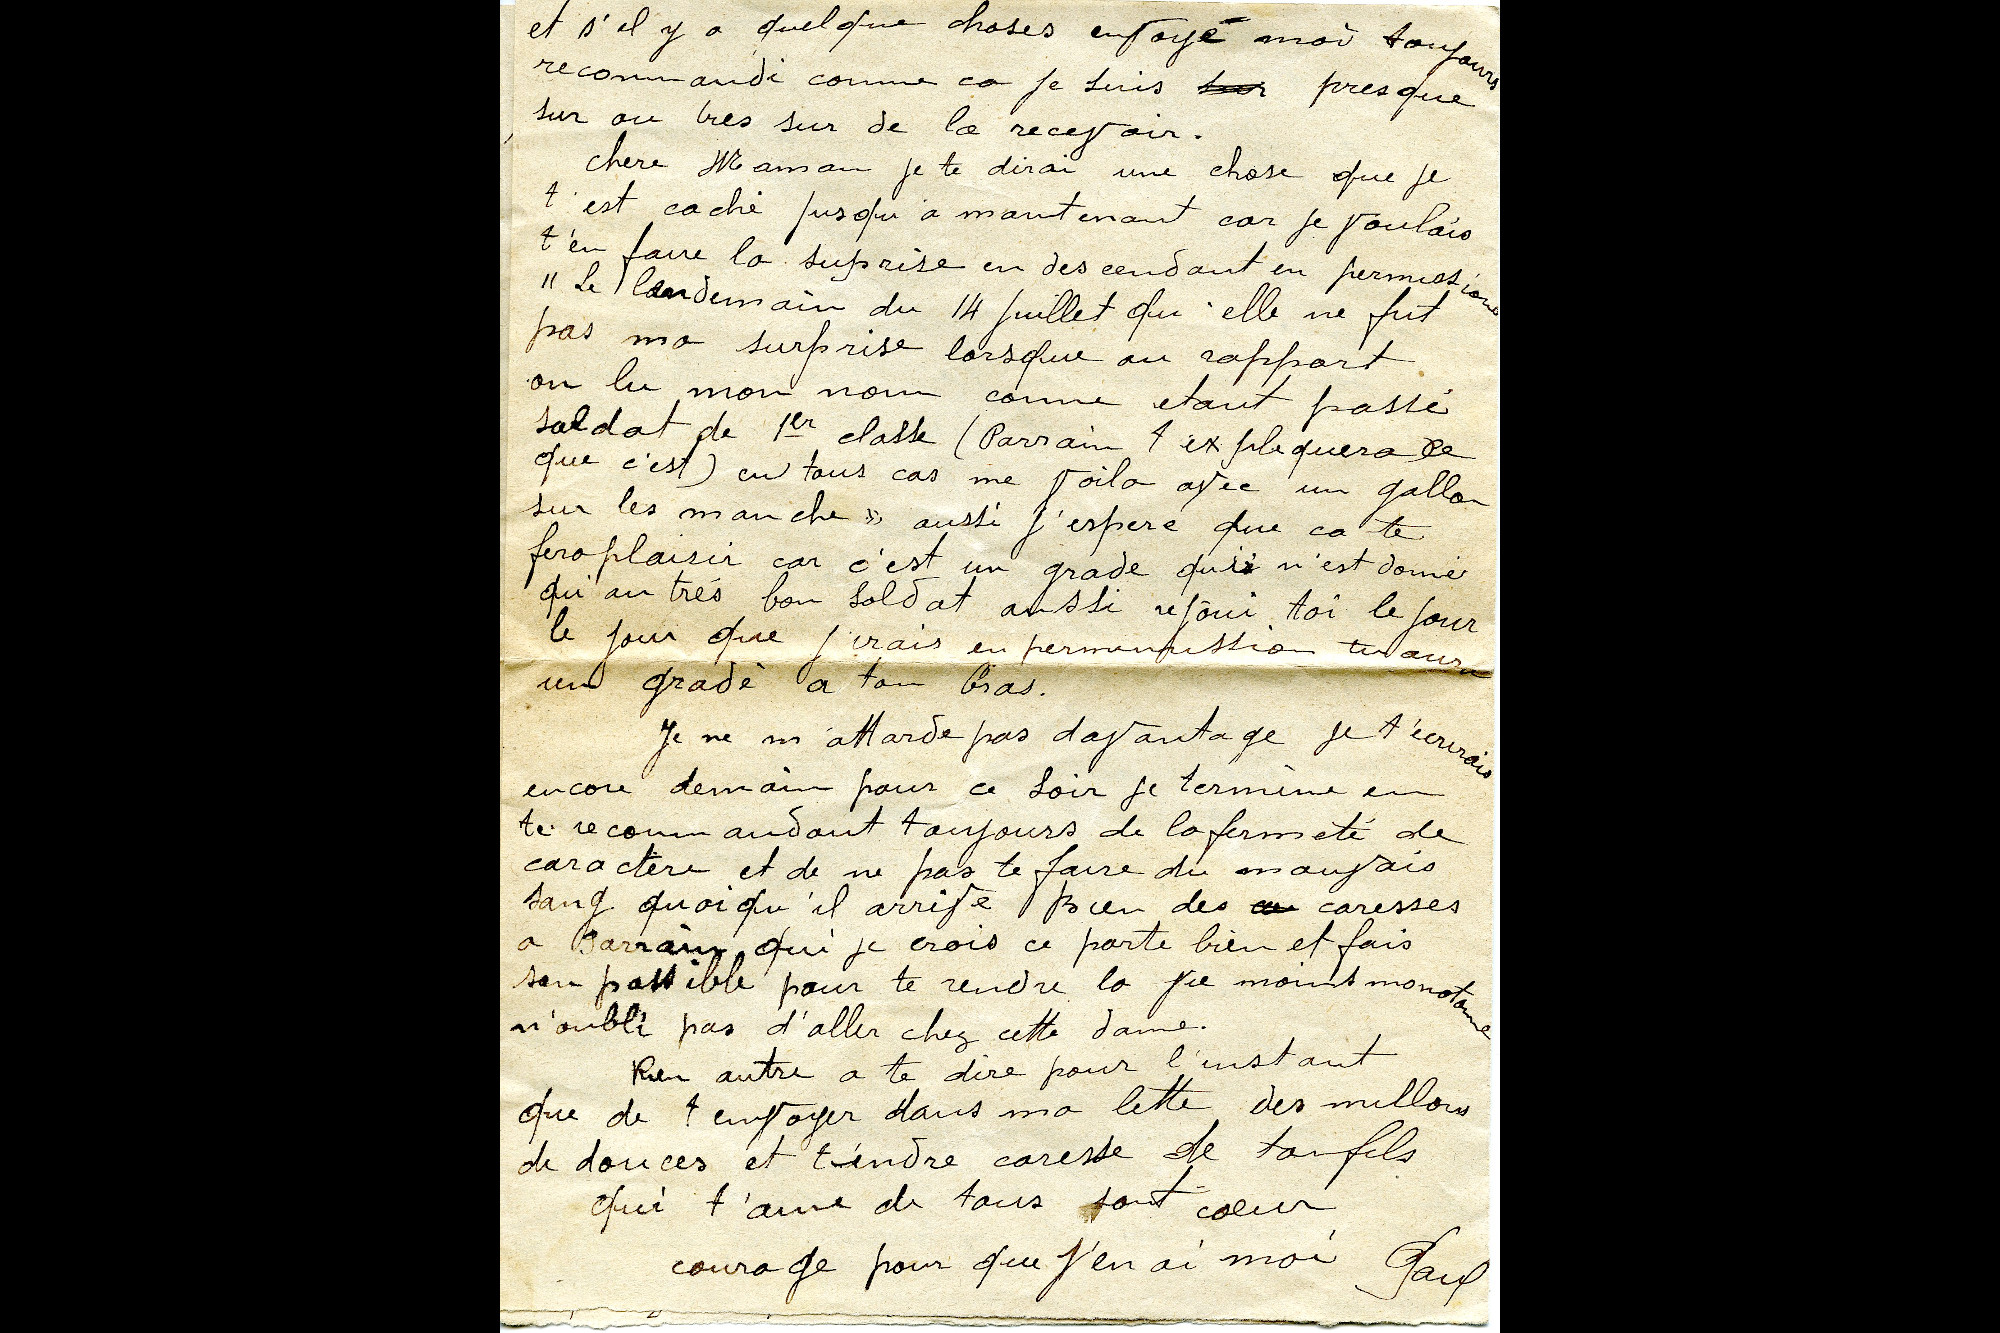 et s'il y a quelque choses envoyé moi toujours
recommandé comme ca je suis sur presque
sur ou tres sur de la recevoir.
chere Maman je te dirai une chose que je
t'est caché jusqu'a maintenant car je voulais
t'en faire la suprise en descendant en permissione
" Le landemain du 14 juillet qu'elle ne fut
pas ma surprise lorsque au rapport
on lu mon nom comme etant passé
soldat de 1er classe (Parrain t'expliquera ce
que c'est) en tous cas me voila avec un gallon
sur les manche » aussi j'espere que ca te
fera plaisir car c'est un grade qui n'est donné
qu'au trés bon soldat aussi rejoui toi le jour
le jour que j'irais en permmission tu aura
un gradé a ton bras.
Je ne m'attarde pas davantage je t'écrirais
encore demain pour ce soir je termine en
te recommandant toujours de la fermeté de
caractère et de ne pas te faire du mauvais
sang quoiqu'il arrive Bien des caresses
a Parrain qui je crois ce porte bien et fais
son possible pour te rendre la vie moins monotone
n'oubli pas d'aller chez cette dame.
Rien autre a te dire pour l'instant
que de t'envoyer dans ma lette des millons
de douces et tendre caresse de ton fils
qui t'aime de tous sont coeur
courage pour que j'en ai moi Paul